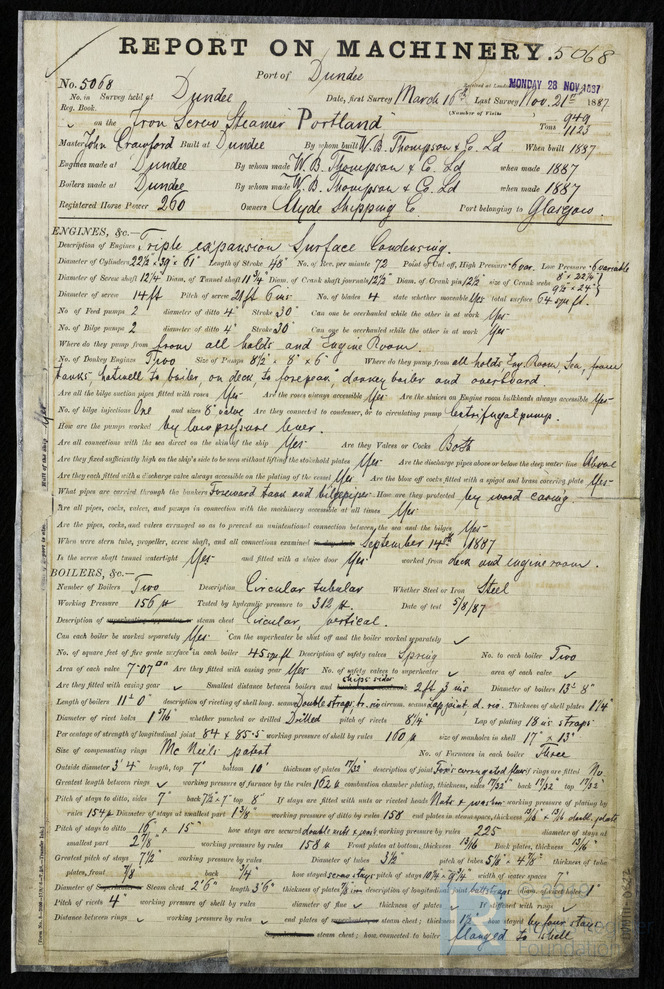 REPORT ON MACHINERY. 5068
Port of Dundee
No. 5068 Received at London MONDAY 28 NOV 1887
No. in Survey held at Dundee Date, first Survey March 16th Last Survey Nov. 21st 1887
Reg. Book. (Number of Visits
" on the Iron Screw Steamer "Portland" Tons 949 1123
Master John Crawford Built at Dundee By whom built W. B. Thompson & Co. Ld When built 1887
Engines made at Dundee By whom made W. B. Thompson & Co. Ld when made 1887
Boilers made at Dundee By whom made W. B. Thompson & Co. Ld when made 1887
Registered Horse Power 260 Owners Clyde Shipping Co. Port belonging to Glasgow.
ENGINES, &c.—
Description of Engines Triple expansion Surface Condensing.
Diameter of Cylinders 22½ × 39 × 61" Length of Stroke 48" No. of Rev. per minute 72 Point of Cut off, High Pressure 6 var. Low Pressure 6 variable
Diameter of Screw shaft 12¼ Diam. of Tunnel shaft 11¾ Diam. of Crank shaft journals 12½" Diam. of Crank pin 12½" size of Crank webs 8" × 22¾" 9½ × 24"
Diameter of screw 14 ft Pitch of screw 21 ft 6 ins No. of blades 4 state whether moveable Yes total surface 64 sqr ft.
No. of Feed pumps 2 diameter of ditto 4" Stroke 30" Can one be overhauled while the other is at work Yes
No. of Bilge pumps 2 diameter of ditto 4" Stroke 30" Can one be overhauled while the other is at work Yes
Where do they pump from from all holds and Engine Room.
No. of Donkey Engines Two Size of Pumps 8½ × 8" × 6" Where do they pump from all holds, Eng. Room, Sea,
tanks, hotwell to boiler, on deck to donkey boiler and overboard
Are all the bilge suction pipes fitted with roses Yes Are the roses always accessible Yes Are the sluices on Engine room bulkheads always accessible Yes
No. of bilge injections One and sizes 6" valve Are they connected to condenser, or to circulating pump Centrifugal pump.
How are the pumps worked by low pressure lever.
Are all connections with the sea direct on the skin of the ship Yes Are they Valves or Cocks Both
Are they fixed sufficiently high on the ship's side to be seen without lifting the stokehold plates Yes Are the discharge pipes above or below the deep water line Above
Are they each fitted with a discharge valve always accessible on the plating of the vessel Yes Are the blow off cocks fitted with a spigot and brass covering plate Yes
What pipes are carried through the bunkers Forward tank and bilge pipes How are they protected by wood casing
Are all pipes, cocks, valves, and pumps in connection with the machinery accessible at all times Yes
Are the pipes, cocks, and valves arranged so as to prevent an unintentional connection between the sea and the bilges Yes
When were stern tube, propeller, screw shaft, and all connections examined in dry dock September 14th 1887
Is the screw shaft tunnel watertight Yes and fitted with a sluice door Yes worked from deck and engine room.
BOILERS, &c.—
Number of Boilers Two Description Circular tubular Whether Steel or Iron Steel
Working Pressure 156 # Tested by hydraulic pressure to 312 #. Date of test 5/8/87
Description of superheating apparatus or steam chest Circular, vertical.
Can each boiler be worked separately Yes Can the superheater be shut off and the boiler worked separately ✓
No. of square feet of fire grate surface in each boiler 45 sqr ft Description of safety valves Spring No. to each boiler Two
Area of each valve 7·07 □" Are they fitted with easing gear Yes No. of safety valves to superheater ✓ area of each valve ✓
Are they fitted with easing gear ✓ Smallest distance between boilers and ships sides 2 ft 3 ins Diameter of boilers 13' 8"
Length of boilers 11' 0" description of riveting of shell long. seams Double straps, tr. riv circum. seams Lap joint, d. riv. Thickness of shell plates 1¼"
Diameter of rivet holes 1 5/16" whether punched or drilled Drilled pitch of rivets 8¼" Lap of plating 18 ins straps
Per centage of strength of longitudinal joint 84 × 85·5 working pressure of shell by rules 160 # size of manholes in shell 17" × 13"
Size of compensating rings McNeils patent No. of Furnaces in each boiler Three
Outside diameter 3' 4" length, top 7' bottom 10' thickness of plates 17/32" description of joint Fox's corrugated if rings are fitted No
Greatest length between rings ✓ working pressure of furnace by the rules 162 # combustion chamber plating, thickness, sides 17/32" back 17/32" top 17/32"
Pitch of stays to ditto, sides 7" back 7½ × 7" top 8" If stays are fitted with nuts or riveted heads Nuts & washers working pressure of plating by
rules 154 # Diameter of stays at smallest part 1 3/8" working pressure of ditto by rules 158 end plates in steam space, thickness
Pitch of stays to ditto 16 × 15" how stays are secured double nuts & wash working pressure by rules 225 diameter of stays at
smallest part 2 7/8" working pressure by rules 158 # Front plates at bottom, thickness 13/16 Back plates, thickness 13/16"
Greatest pitch of stays 7½" working pressure by rules Diameter of tubes 3½ pitch of tubes 5 1/8" × 4 7/8" thickness of tube
plates, front 7/8 back ¾" how stayed screw stays pitch of stays 10¼ × 9¾" width of water spaces 7"
Diameter of Superheater or Steam chest 2' 6" length 3' 6" thickness of plates 7/8 ins description of longitudinal joint butt straps diam. of rivet holes 1"
Pitch of rivets 4" working pressure of shell by rules diameter of flue ✓ thickness of plates ✓ If stiffened with rings ✓
Distance between rings ✓ working pressure by rules ✓ end plates of superheater, or steam chest; thickness how stayed by four stays
Superheater or steam chest; how connected to boiler flanged to shell